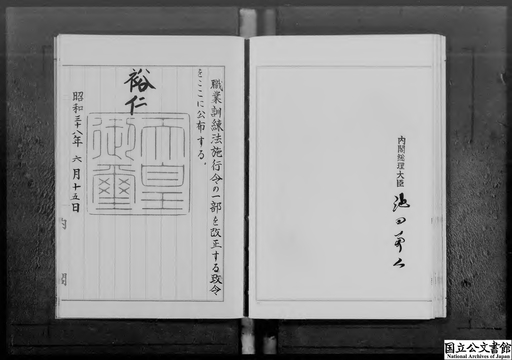 職業訓練法施行令の一部を改正する政令
をここに公布する。
裕仁
天皇
御璽
昭和三十八年六月十五日
内閣総理大臣
池田勇人
国立公文書館
National Archives of Japan